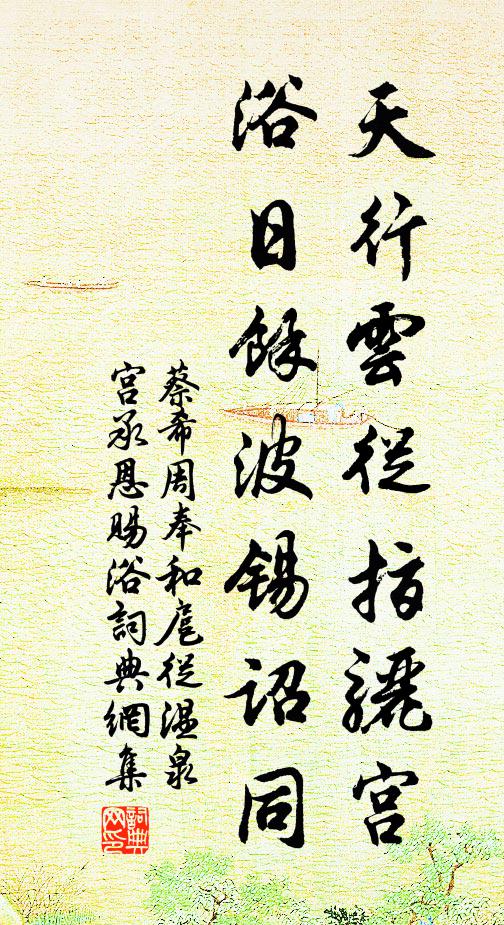 天行雲從指驪宮
浴日餘波錫詔同
蔡希周奉和扈從溫泉
宮承恩賜浴詞典網集
詞典
網印